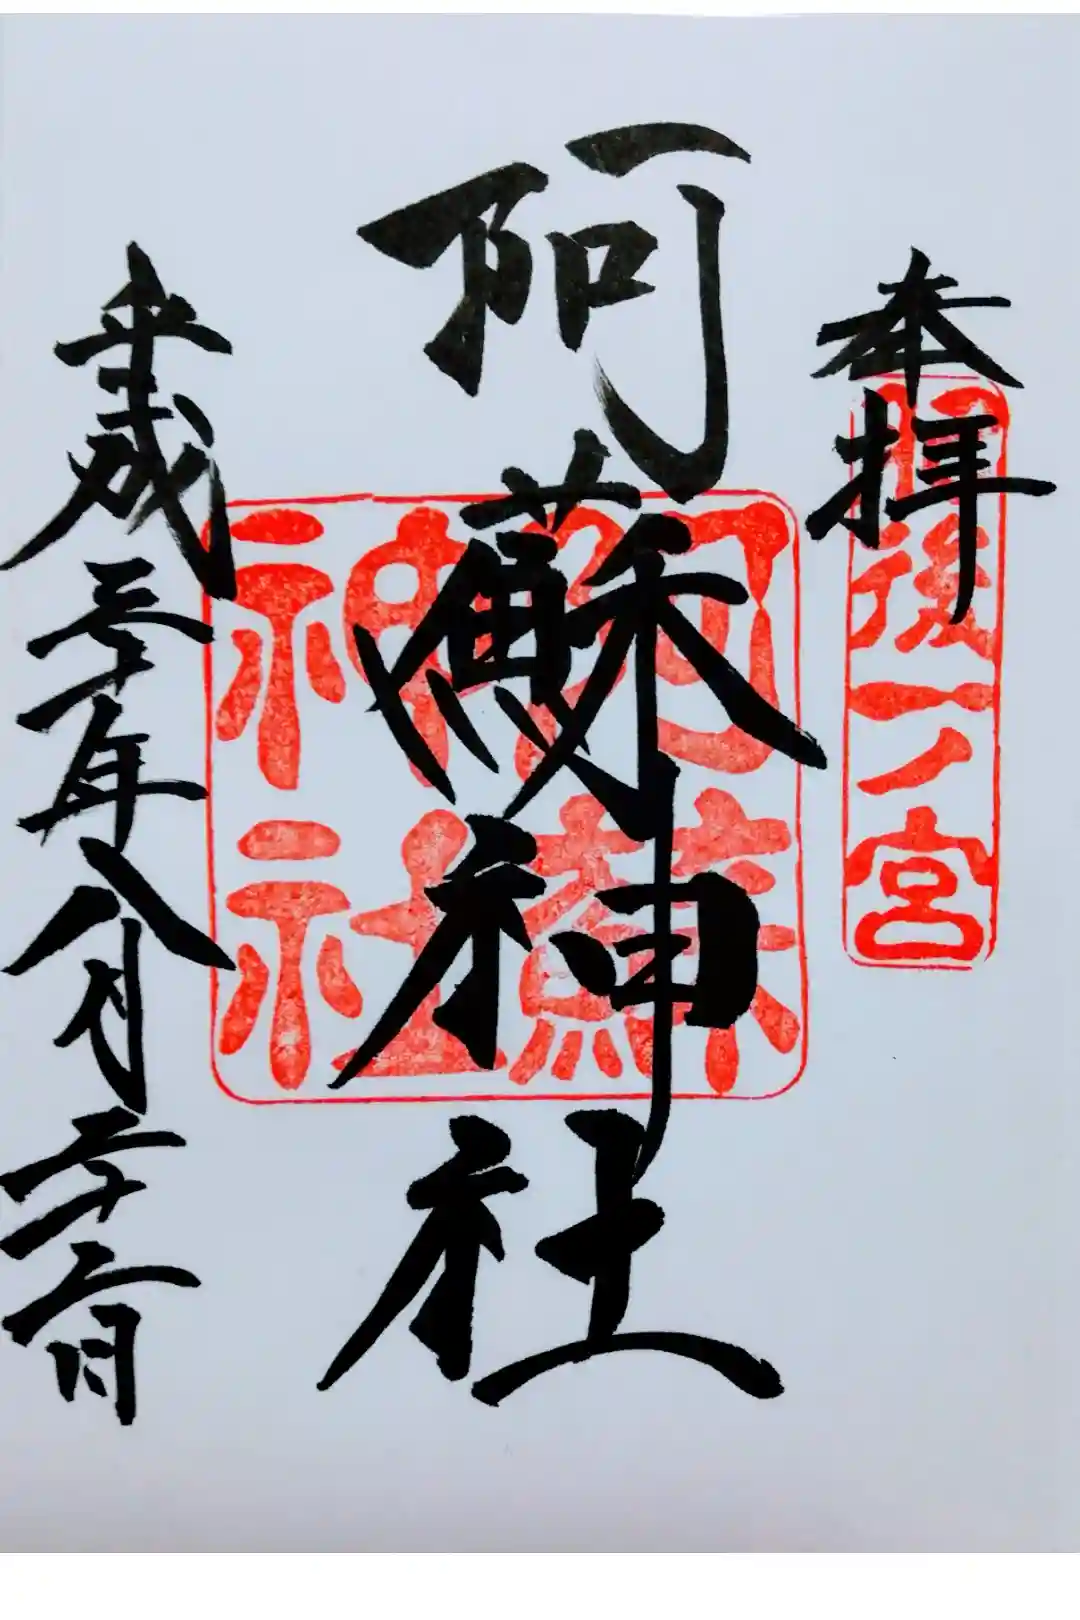 奉拝
肥後一ノ宮
阿蘇神社
阿蘇
神社
平成三十年八月二十二日